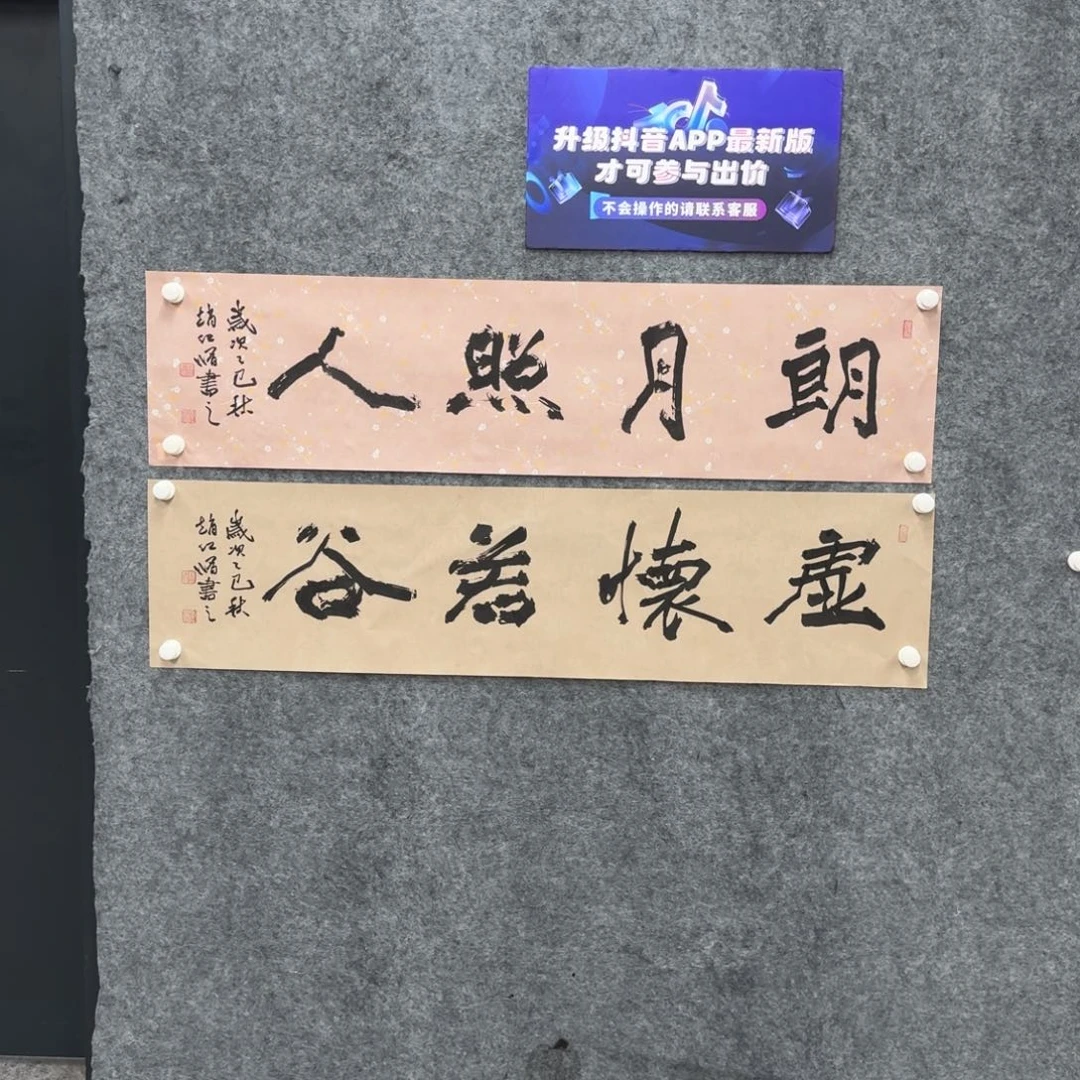 升级抖音APP最新版
才可参与出价
不会操作的请联系客服
朗月照人
歲次乙巳秋
虛懷若谷
歲次乙巳秋